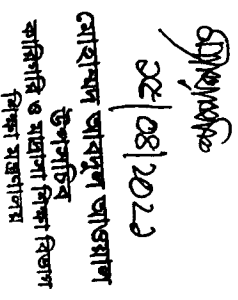 মোহাম্মদ আবদুল আওয়াল
উপসচিব
কারিগরি ও মাদ্রাসা শিক্ষা বিভাগ
শিক্ষা মন্ত্রণালয়